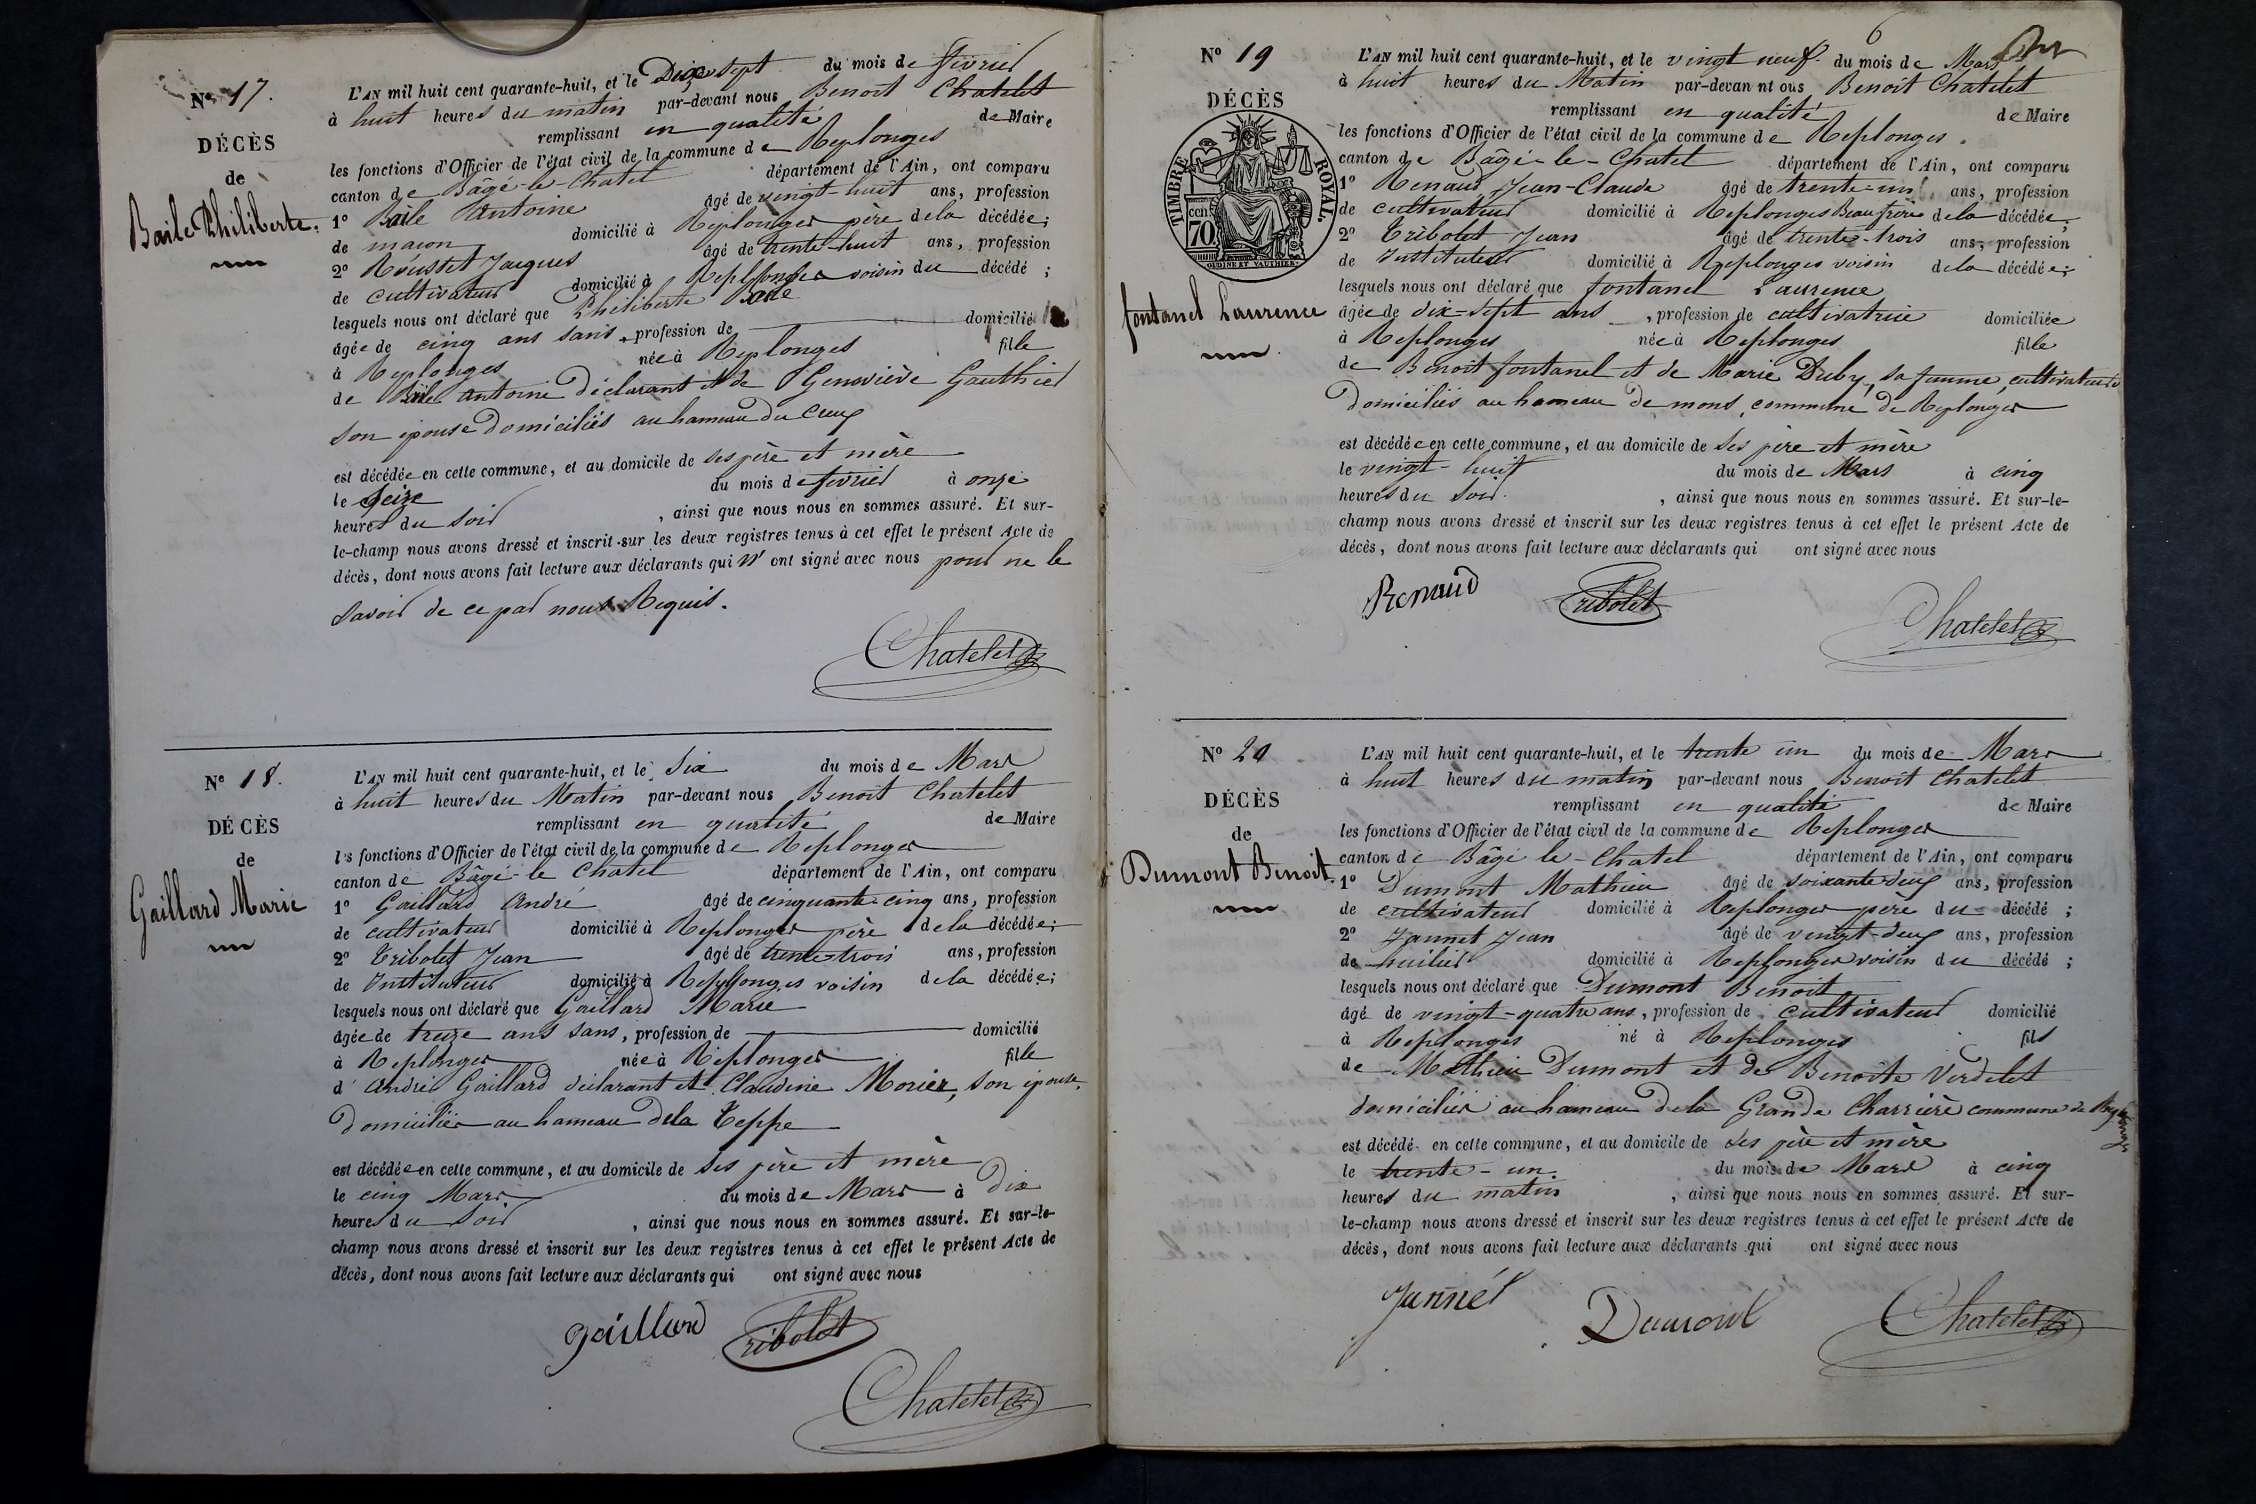 Nº 17.
DÉCÈS
de
Baile Philiberte.
L'AN mil huit cent quarante-huit, et le Dix sept du mois de février
à huit heures du matin par-devant nous Benoit Chatelet
remplissant en qualité de Maire
les fonctions d'Officier de l'état civil de la commune de Replonges
canton de Bâgé-le-Chatel département de l'Ain, ont comparu
1º Baile Antoine âgé de vingt-huit ans, profession
de maçon domicilié à Replonges père de la décédée;
2º Jacques âgé de trente-huit ans, profession
de cultivateur domicilié à Replonges voisin du décédé;
lesquels nous ont déclaré que Philiberte Baile
âgée de cinq ans sans, profession de domicilié
à Replonges née à Replonges fille
de Baile Antoine déclarant et de Geneviève Gauthier
son épouse domiciliés au hameau du Creux
est décédée en cette commune, et au domicile de ses père et mère
le Seize du mois de février à onze
heures du soir, ainsi que nous nous en sommes assuré. Et sur-
le-champ nous avons dressé et inscrit sur les deux registres tenus à cet effet le présent Acte de
décès, dont nous avons fait lecture aux déclarants qui n' ont signé avec nous pour ne le
savoir de ce par nous Requis.
Chatelet
Nº 18.
DÉCÈS
de
Gaillard Marie
L'AN mil huit cent quarante-huit, et le Six du mois de Mars
à huit heures du Matin par-devant nous Benoit Chatelet
remplissant en qualité de Maire
l's fonctions d'Officier de l'état civil de la commune de Replonges
canton de Bâgé-le Chatel département de l'Ain, ont comparu
1º Gaillard André âgé de cinquante-cinq ans, profession
de cultivateur domicilié à Replonges père de la décédée;
2º Tribolet Jean âgé de trente-trois ans, profession
de Instituteur domicilié à Replonges voisin de la décédée;
lesquels nous ont déclaré que Gaillard Marie
âgée de treize ans sans, profession de domicilié
à Replonges née à Replonges fille
d' André Gaillard déclarant et Claudine Morier, son épouse,
domiciliés au hameau de la Teppe
est décédée en cette commune, et au domicile de ses père et mère
le cinq Mars du mois de Mars à dix
heures du Soir, ainsi que nous nous en sommes assuré. Et sur-le-
champ nous avons dressé et inscrit sur les deux registres tenus à cet effet le présent Acte de
décès, dont nous avons fait lecture aux déclarants qui ont signé avec nous
gaillard Tribolet
Chatelet
6
Nº 19
DÉCÈS
TIMBRE ROYAL.
CEN. 70.
fontanel Laurence
L'AN mil huit cent quarante-huit, et le vingt neuf du mois de Mars
à huit heures du Matin par-devan nt ous Benoit Chatelet
remplissant en qualité de Maire
les fonctions d'Officier de l'état civil de la commune de Replonges.
canton de Bâgé-le-Chatel département de l'Ain, ont comparu
1º Renaud Jean-Claude âgé de trente-un ans, profession
de cultivateur domicilié à Replonges Beaufrère de la décédée;
2º Tribolet Jean âgé de trente-trois ans, profession
de Instituteur domicilié à Replonges voisin de la décédée;
lesquels nous ont déclaré que fontanel Laurence
âgée de dix-sept ans, profession de cultivatrice domiciliée
à Replonges née à Replonges fille
de Benoit fontanel et de Marie Duby, sa femme, cultivateurs
Domiciliés au hameau de mons, commune de Replonges
est décédée en cette commune, et au domicile de ses père et mère
le vingt-huit du mois de Mars à cinq
heures du Soir, ainsi que nous nous en sommes assuré. Et sur-le-
champ nous avons dressé et inscrit sur les deux registres tenus à cet effet le présent Acte de
décès, dont nous avons fait lecture aux déclarants qui ont signé avec nous
Renaud Tribolet
Chatelet
Nº 20
DÉCÈS
de
Dumont Benoit.
L'AN mil huit cent quarante-huit, et le trente un du mois de Mars
à huit heures du matin par-devant nous Benoit Chatelet
remplissant en qualité de Maire
les fonctions d'Officier de l'état civil de la commune de Replonges
canton de Bâgé le-Chatel département de l'Ain, ont comparu
1º Dumont Mathieu âgé de soixante deux ans, profession
de cultivateur domicilié à Replonges père du décédé;
2º Jannet Jean âgé de vingt-deux ans, profession
de huilier domicilié à Replonges voisin du décédé;
lesquels nous ont déclaré que Dumont Benoit
âgé de vingt-quatre ans, profession de cultivateur domicilié
à Replonges né à Replonges fils
de Mathieu Dumont et de Benoite Verdelet
domiciliés au hameau de la Grande Charrière commune de Replonges
est décédé en cette commune, et au domicile de ses père et mère
le trente-un du mois de Mars à cinq
heures du matin, ainsi que nous nous en sommes assuré. Et sur-
le-champ nous avons dressé et inscrit sur les deux registres tenus à cet effet le présent Acte de
décès, dont nous avons fait lecture aux déclarants qui ont signé avec nous
Jannet Dumont Chatelet